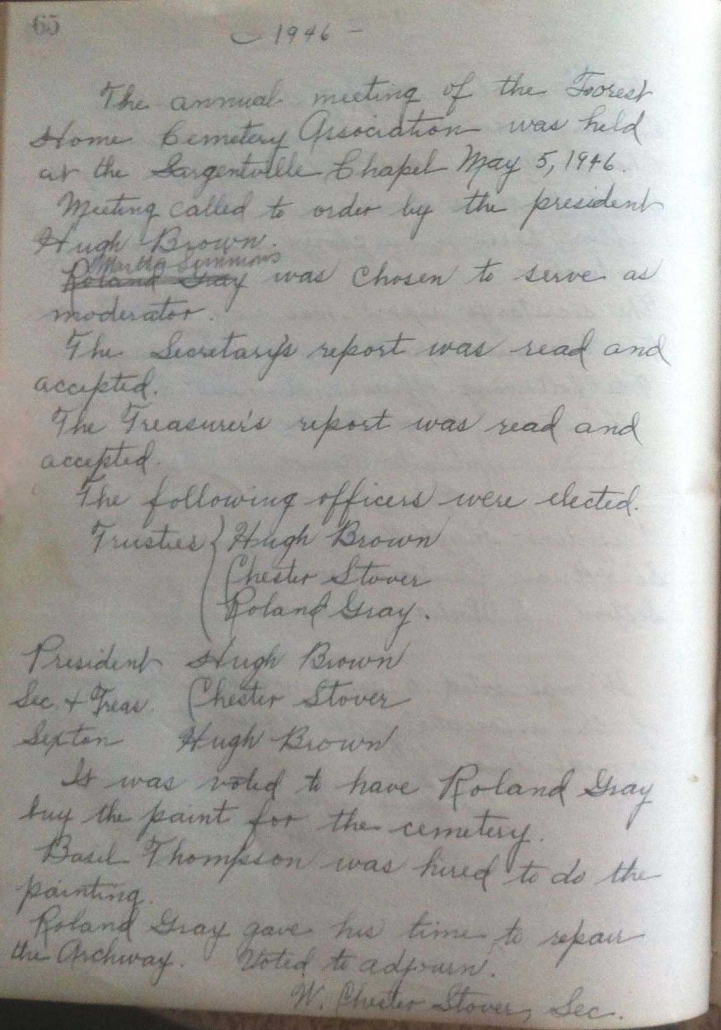 65
- 1946 -
The annual meeting of the Forest
Home Cemetery Association was held
at the Sargentville Chapel May 5, 1946.
Meeting called to order by the president
Hugh Brown.
Martha Simmons
Roland Gray was chosen to serve as
moderator.
The Secretary's report was read and
accepted.
The Treasurer's report was read and
accepted.
The following officers were elected.
Trustees { Hugh Brown
Chester Stover
Roland Gray.
President Hugh Brown
Sec. & Treas. Chester Stover
Sexton Hugh Brown
It was voted to have Roland Gray
buy the paint for the cemetery.
Basil Thompson was hired to do the
painting.
Roland Gray gave his time to repair
the Archway. Voted to adjourn.
W. Chester Stover, Sec.